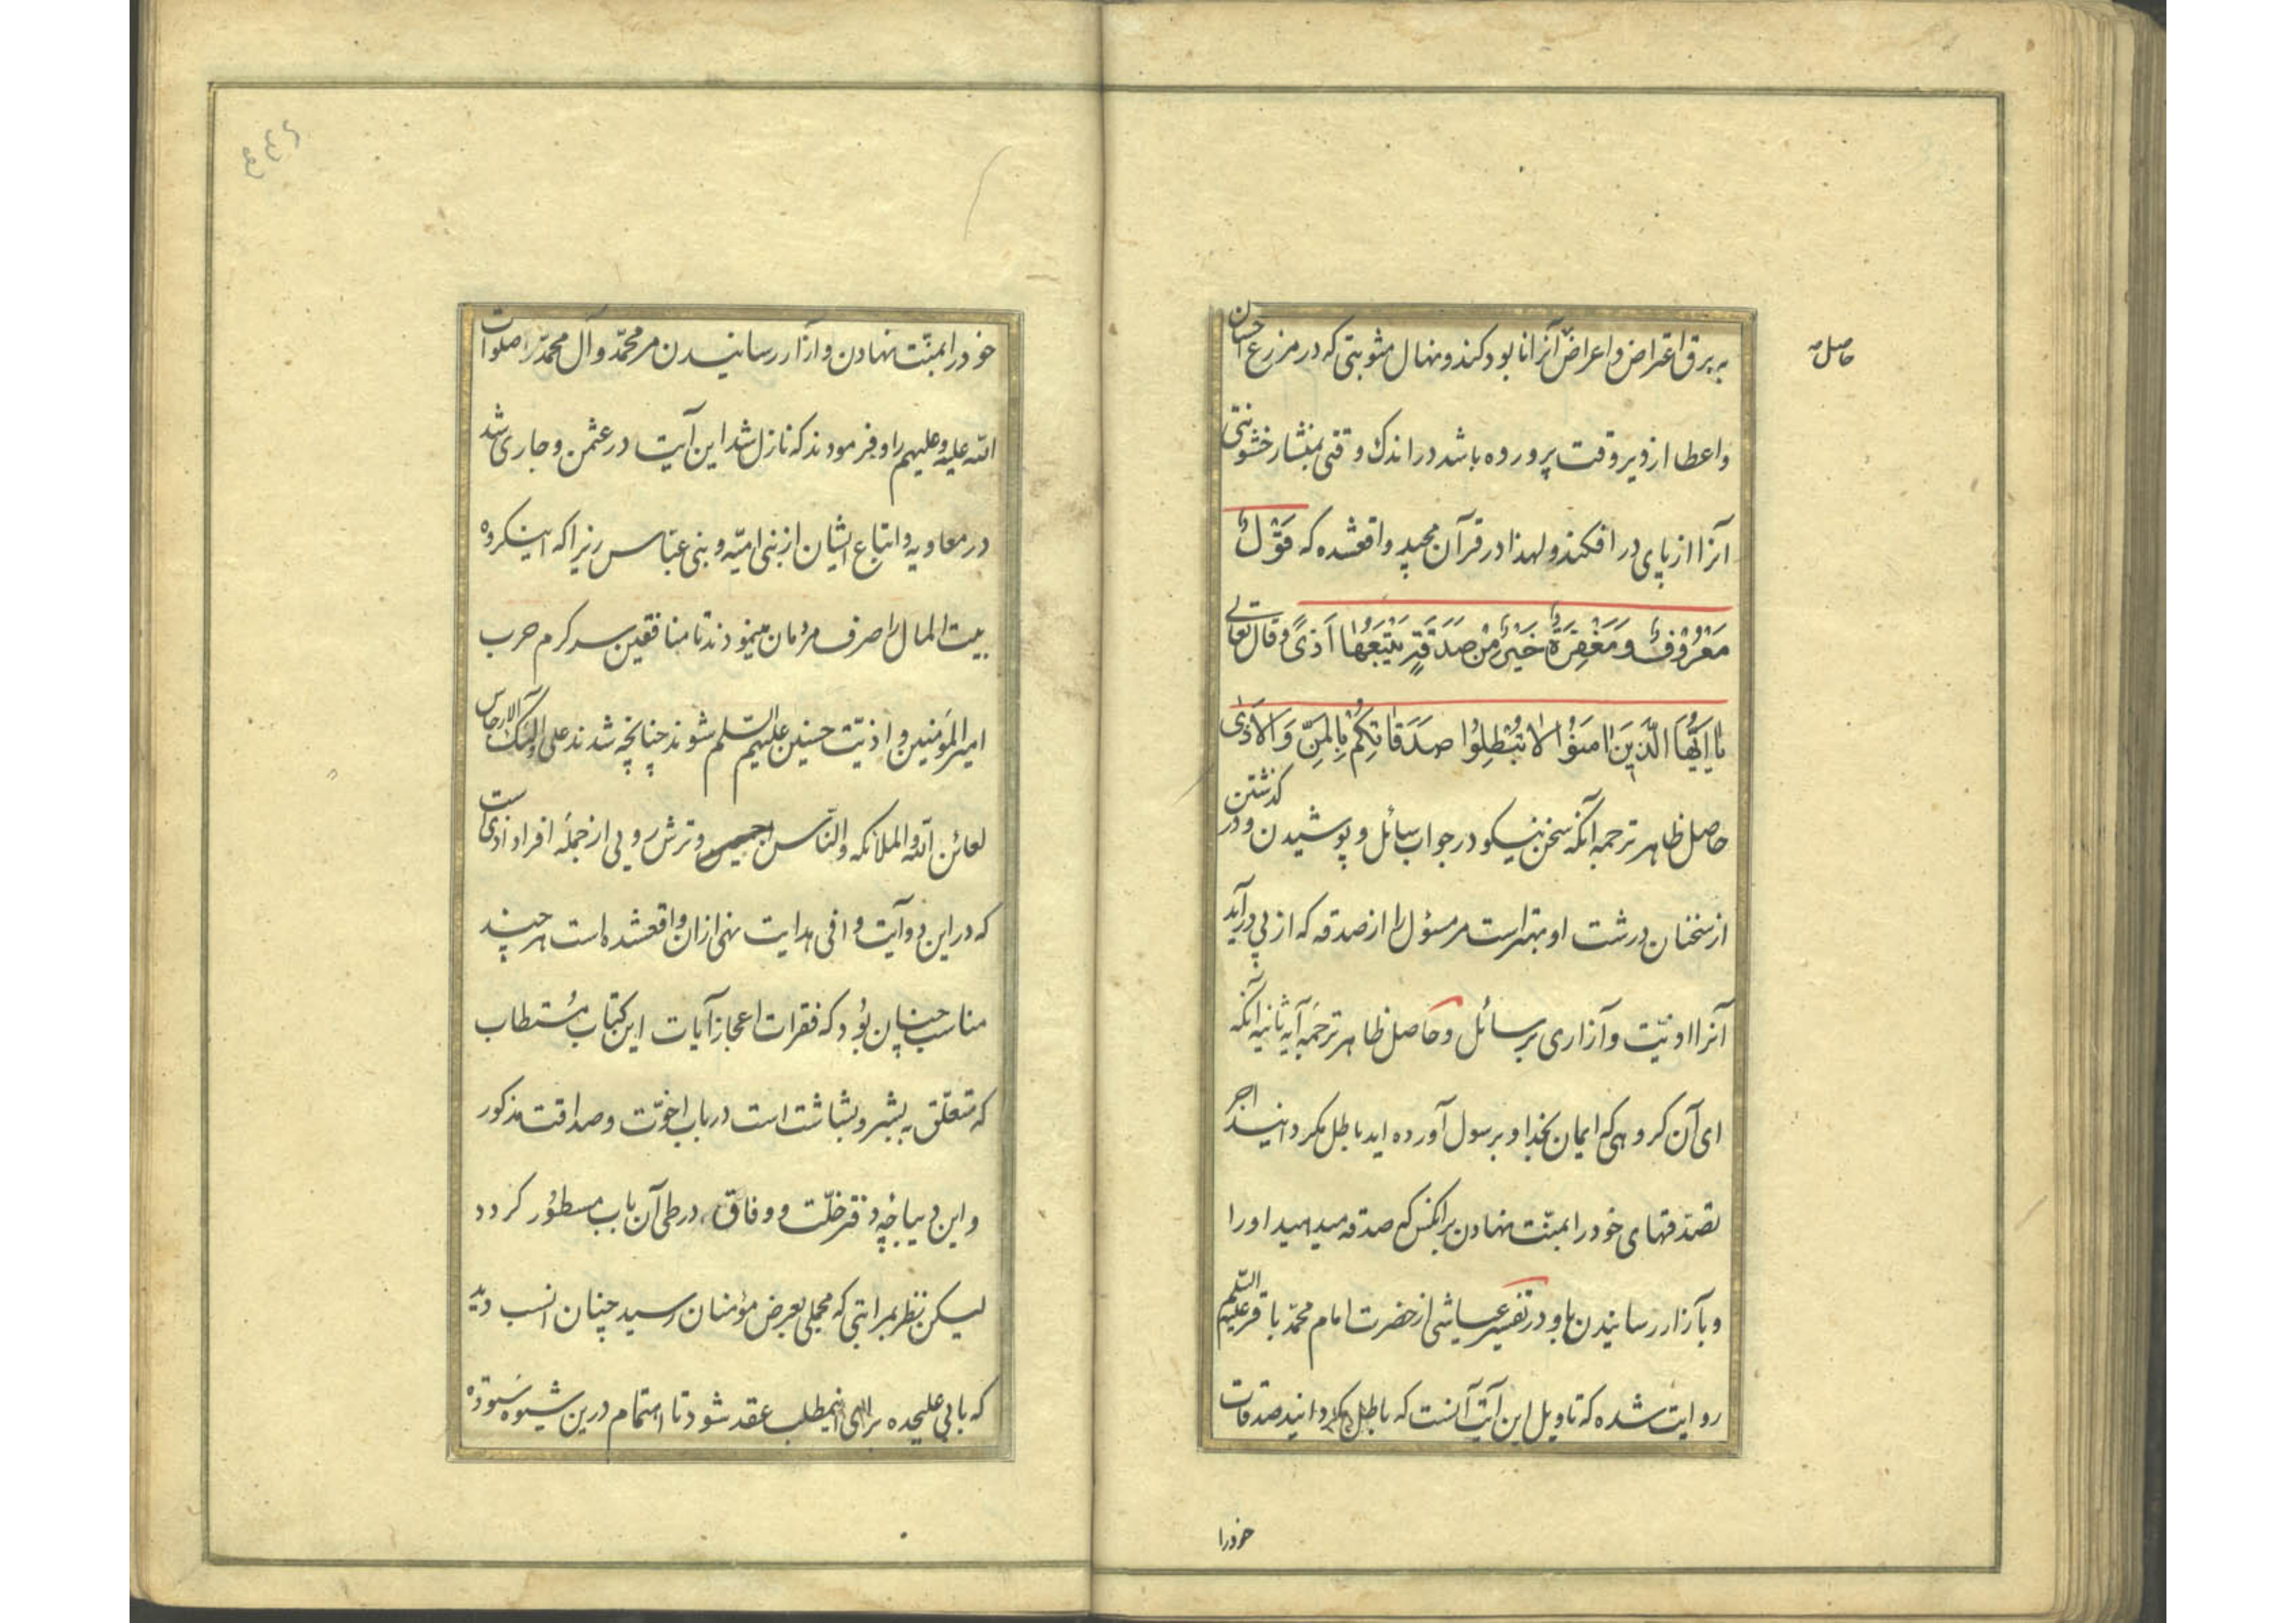 حاصل
به برق اعتراض و اعراض آنرا نابود کند و نهال مثوبتی که در مزرع احسان
و اعطا از دیر وقت پرورده باشد در اندک وقتی بمنشار خشونتی
آنرا از پای در افکند و لهذا در قرآن مجید واقعشده که قَوْلٌ
مَعْرُوفٌ وَ مَغْفِرَةٌ خَيْرٌ مِنْ صَدَقَةٍ يَتْبَعُهَا اَذىً و قال تعالی
يَا اَيُّهَا الَّذِينَ امَنُوا لَا تُبْطِلُوا صَدَقَاتِكُمْ بِالْمَنِّ وَ الْاَذَى
حاصل ظاهر ترجمه آنکه سخن نیکو در جواب سائل و پوشیدن و در گذشتن
از سخنان درشت او بهتر است مر مسئول را از صدقه که از پی درآید
آنرا اذیت و آزاری بر سائل و حاصل ظاهر ترجمهٔ آیه ثانیه آنکه
ای آن گروهی که ایمان بخدا و برسول آورده اید باطل مگردانید اجر
تصدّقهای خود را بمنّت نهادن بر آنکس که صدقه میدهید او را
و بآزار رسانیدن باو و در تفسیر عیاشی از حضرت امام محمّد باقر علیه السّلم
روایت شده که تاویل این آیت آنست که باطل مگردانید صدقات
خود را
خود را بمنّت نهادن و آزار رسانیدن مر محمّد و آل محمّد را صلوات
الله علیه و علیهم را و فرمودند که نازل شد این آیت در عثمن و جاری شد
در معاویه و اتباع ایشان از بنی امیّه و بنی عبّاس زیرا که اینگروه
بیت المال را صرف مردمان مینمودند تا منافقین سر گرم حرب
امیر المؤمنین و اذیّت حسنین علیهم السّلم شوند چنانچه شدند علی اولئک الارجاس
لعائن الله و الملائکه و النّاس اجمعین و ترش رویی از جملهٔ افراد اذی است
که در این دو آیت وافی هدایت نهی ازان واقعشده است هر چند
مناسب چنان بود که فقرات اعجاز آیات این کتاب مُستطاب
که متعلّق به بشر و بشاشت است در باب اخوّت و صداقت مذکور
و این دیباچهٔ دفتر خلّت و وفاق در طی آن باب مسطور گردد
لیکن نظر بمراتبی که مجملی بعرض مؤمنان رسید چنان انسب دید
که بابی علیحده برای اینمطلب عقد شود تا اهتمام درین شیوه ستوده